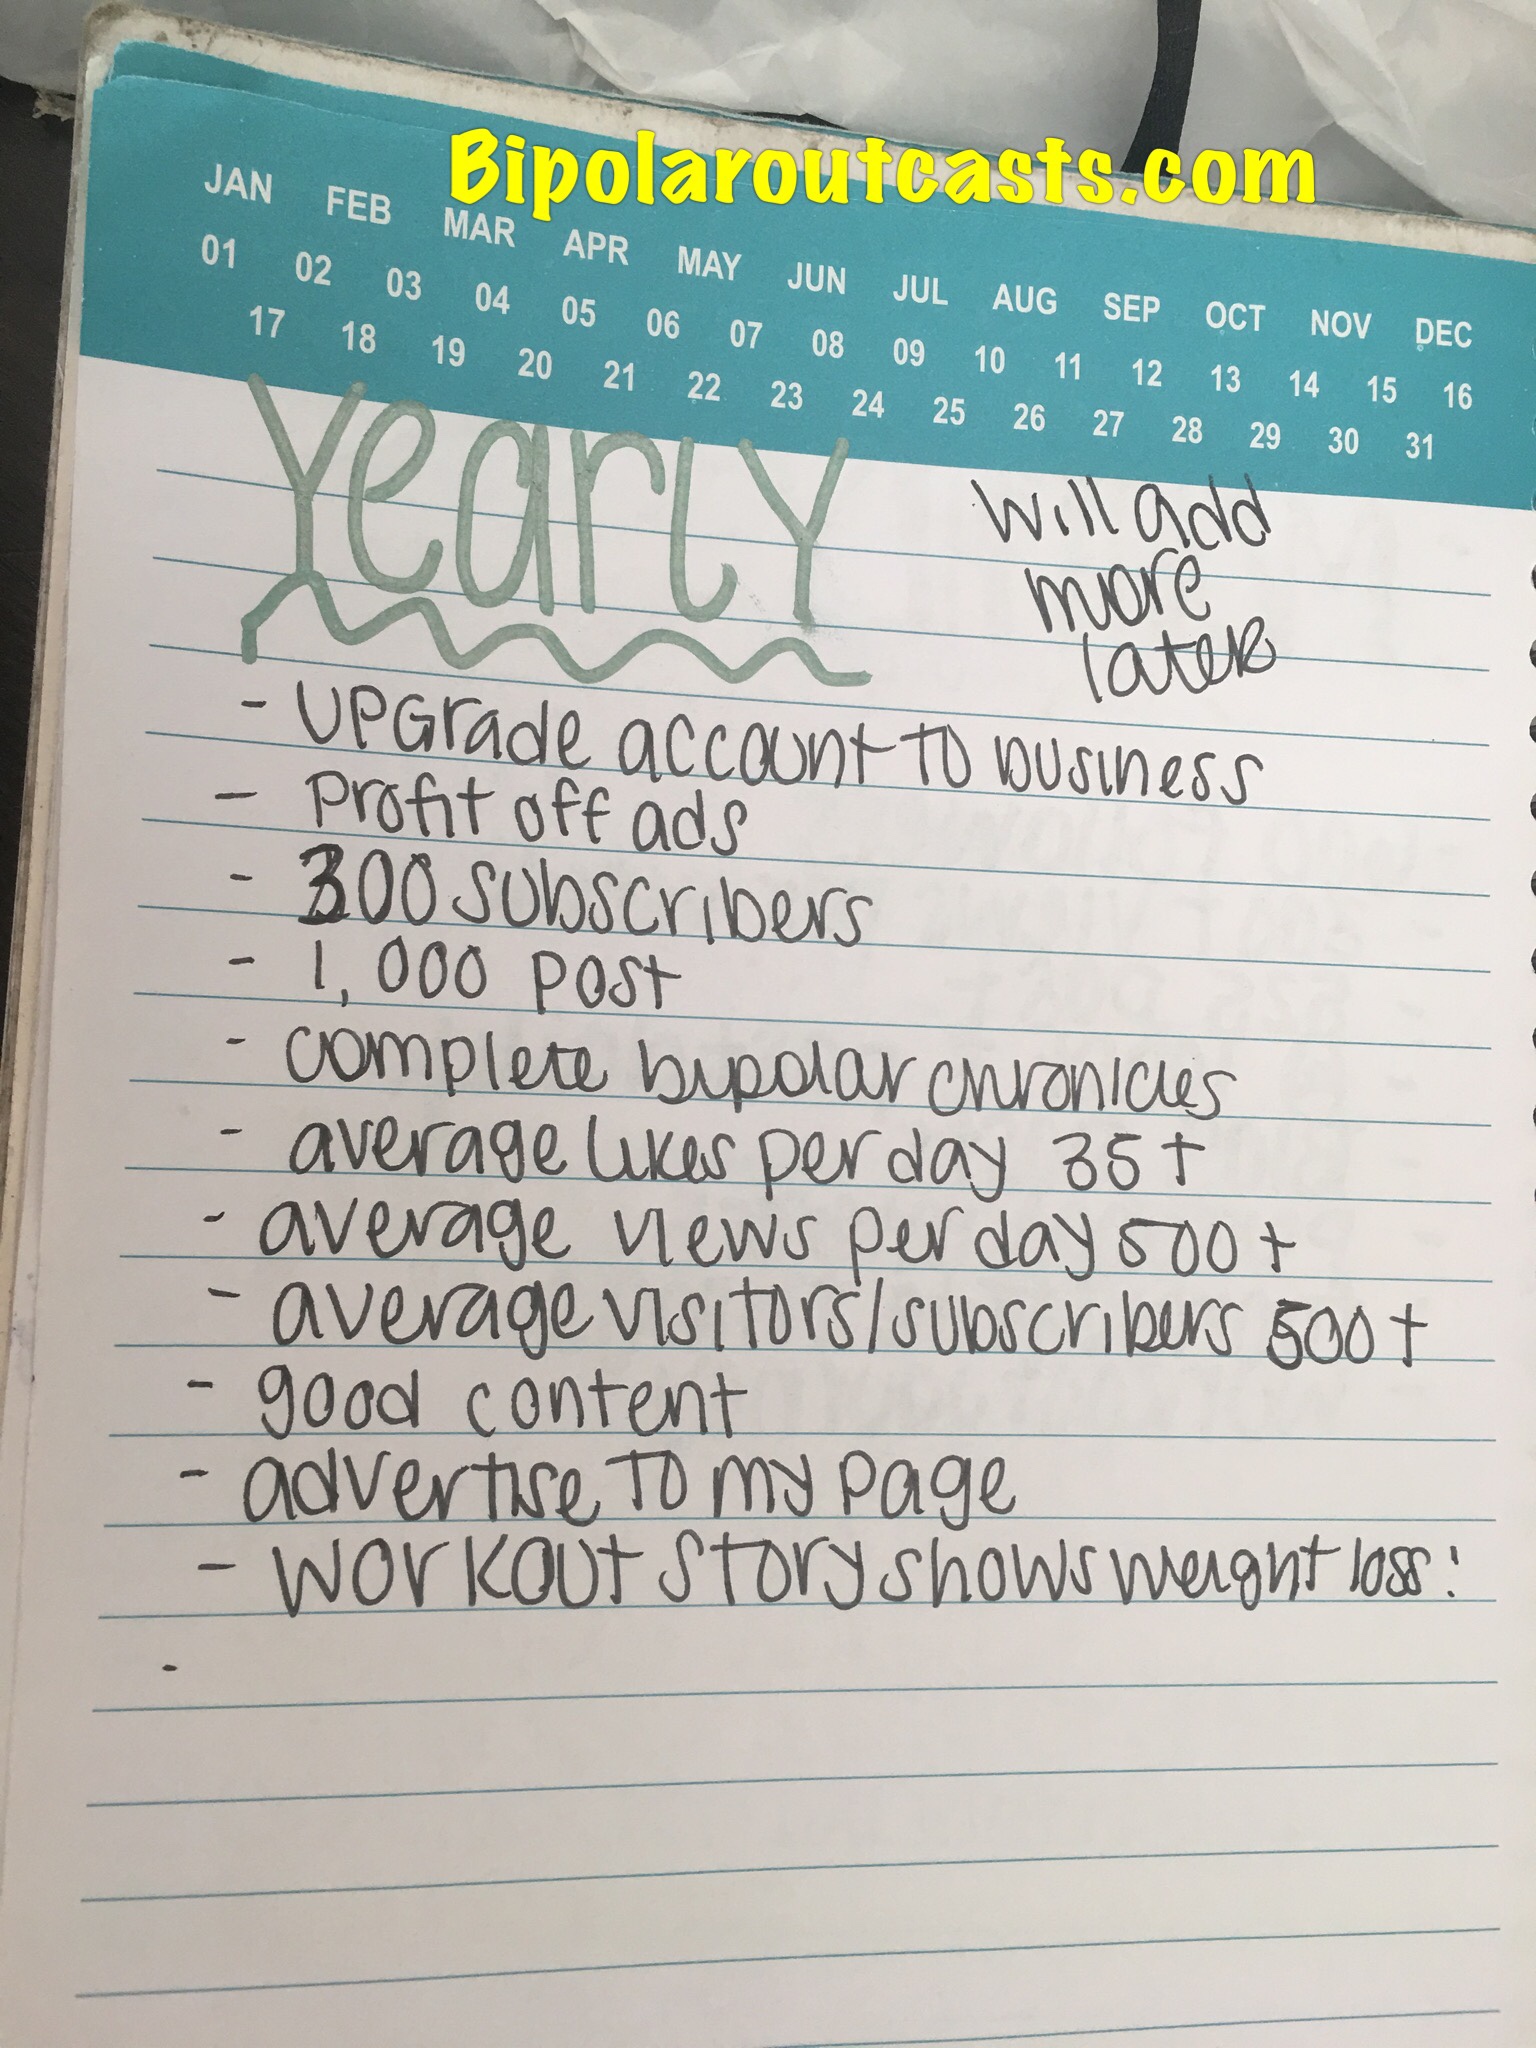 Bipolaroutcasts.com
JAN FEB MAR APR MAY JUN JUL AUG SEP OCT NOV DEC
01 02 03 04 05 06 07 08 09 10 11 12 13 14 15 16
17 18 19 20 21 22 23 24 25 26 27 28 29 30 31
Yearly
will add
more
later
- UPGrade account to business
- Profit off ads
- 300 subscribers
- 1,000 post
- complete bipolar chronicles
- average likes per day 35+
- average views per day 500+
- average visitors/subscribers 500+
- good content
- advertise to my page
- workout story shows weight loss!
-